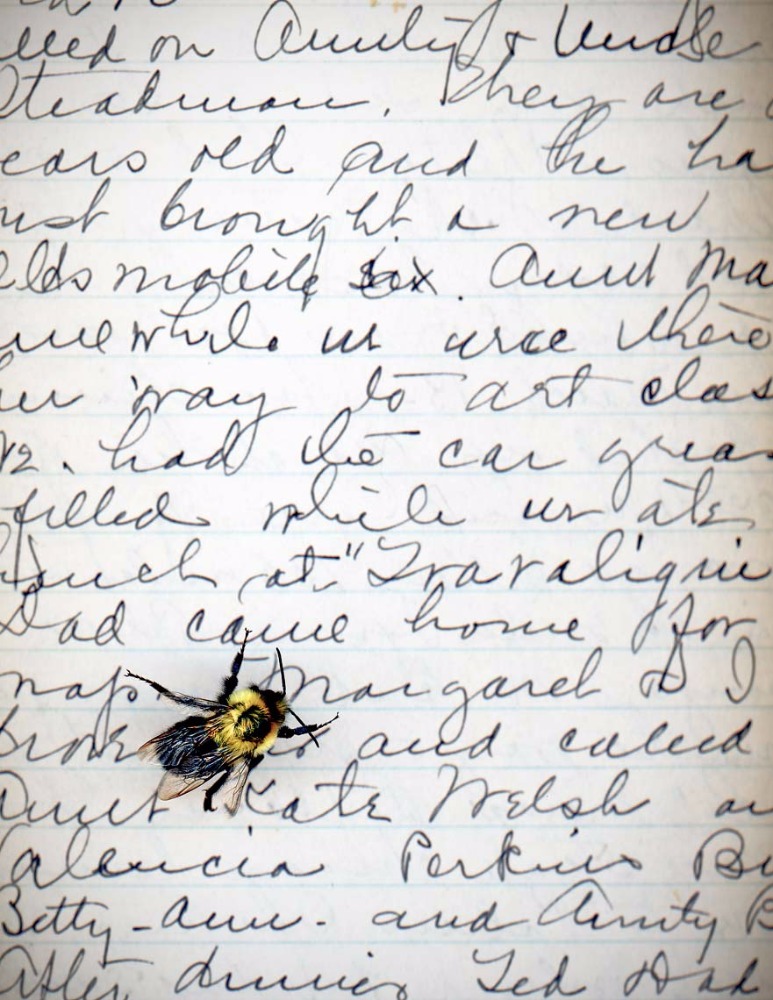 on Aunty & Uncle
Steadman. They are
ears old and he ha
ust brought a new
lds mobile six. Aunt Ma
while we were there
way to art clas
had the car greas
filled while we ate
Lunch at "Travaligini
Dad came home for
nap. Margaret & I
and called
Aunt Kate Welsh an
Valencia Perkins Bu
Betty-Ann. and Aunty B
After dinner Ted Dad